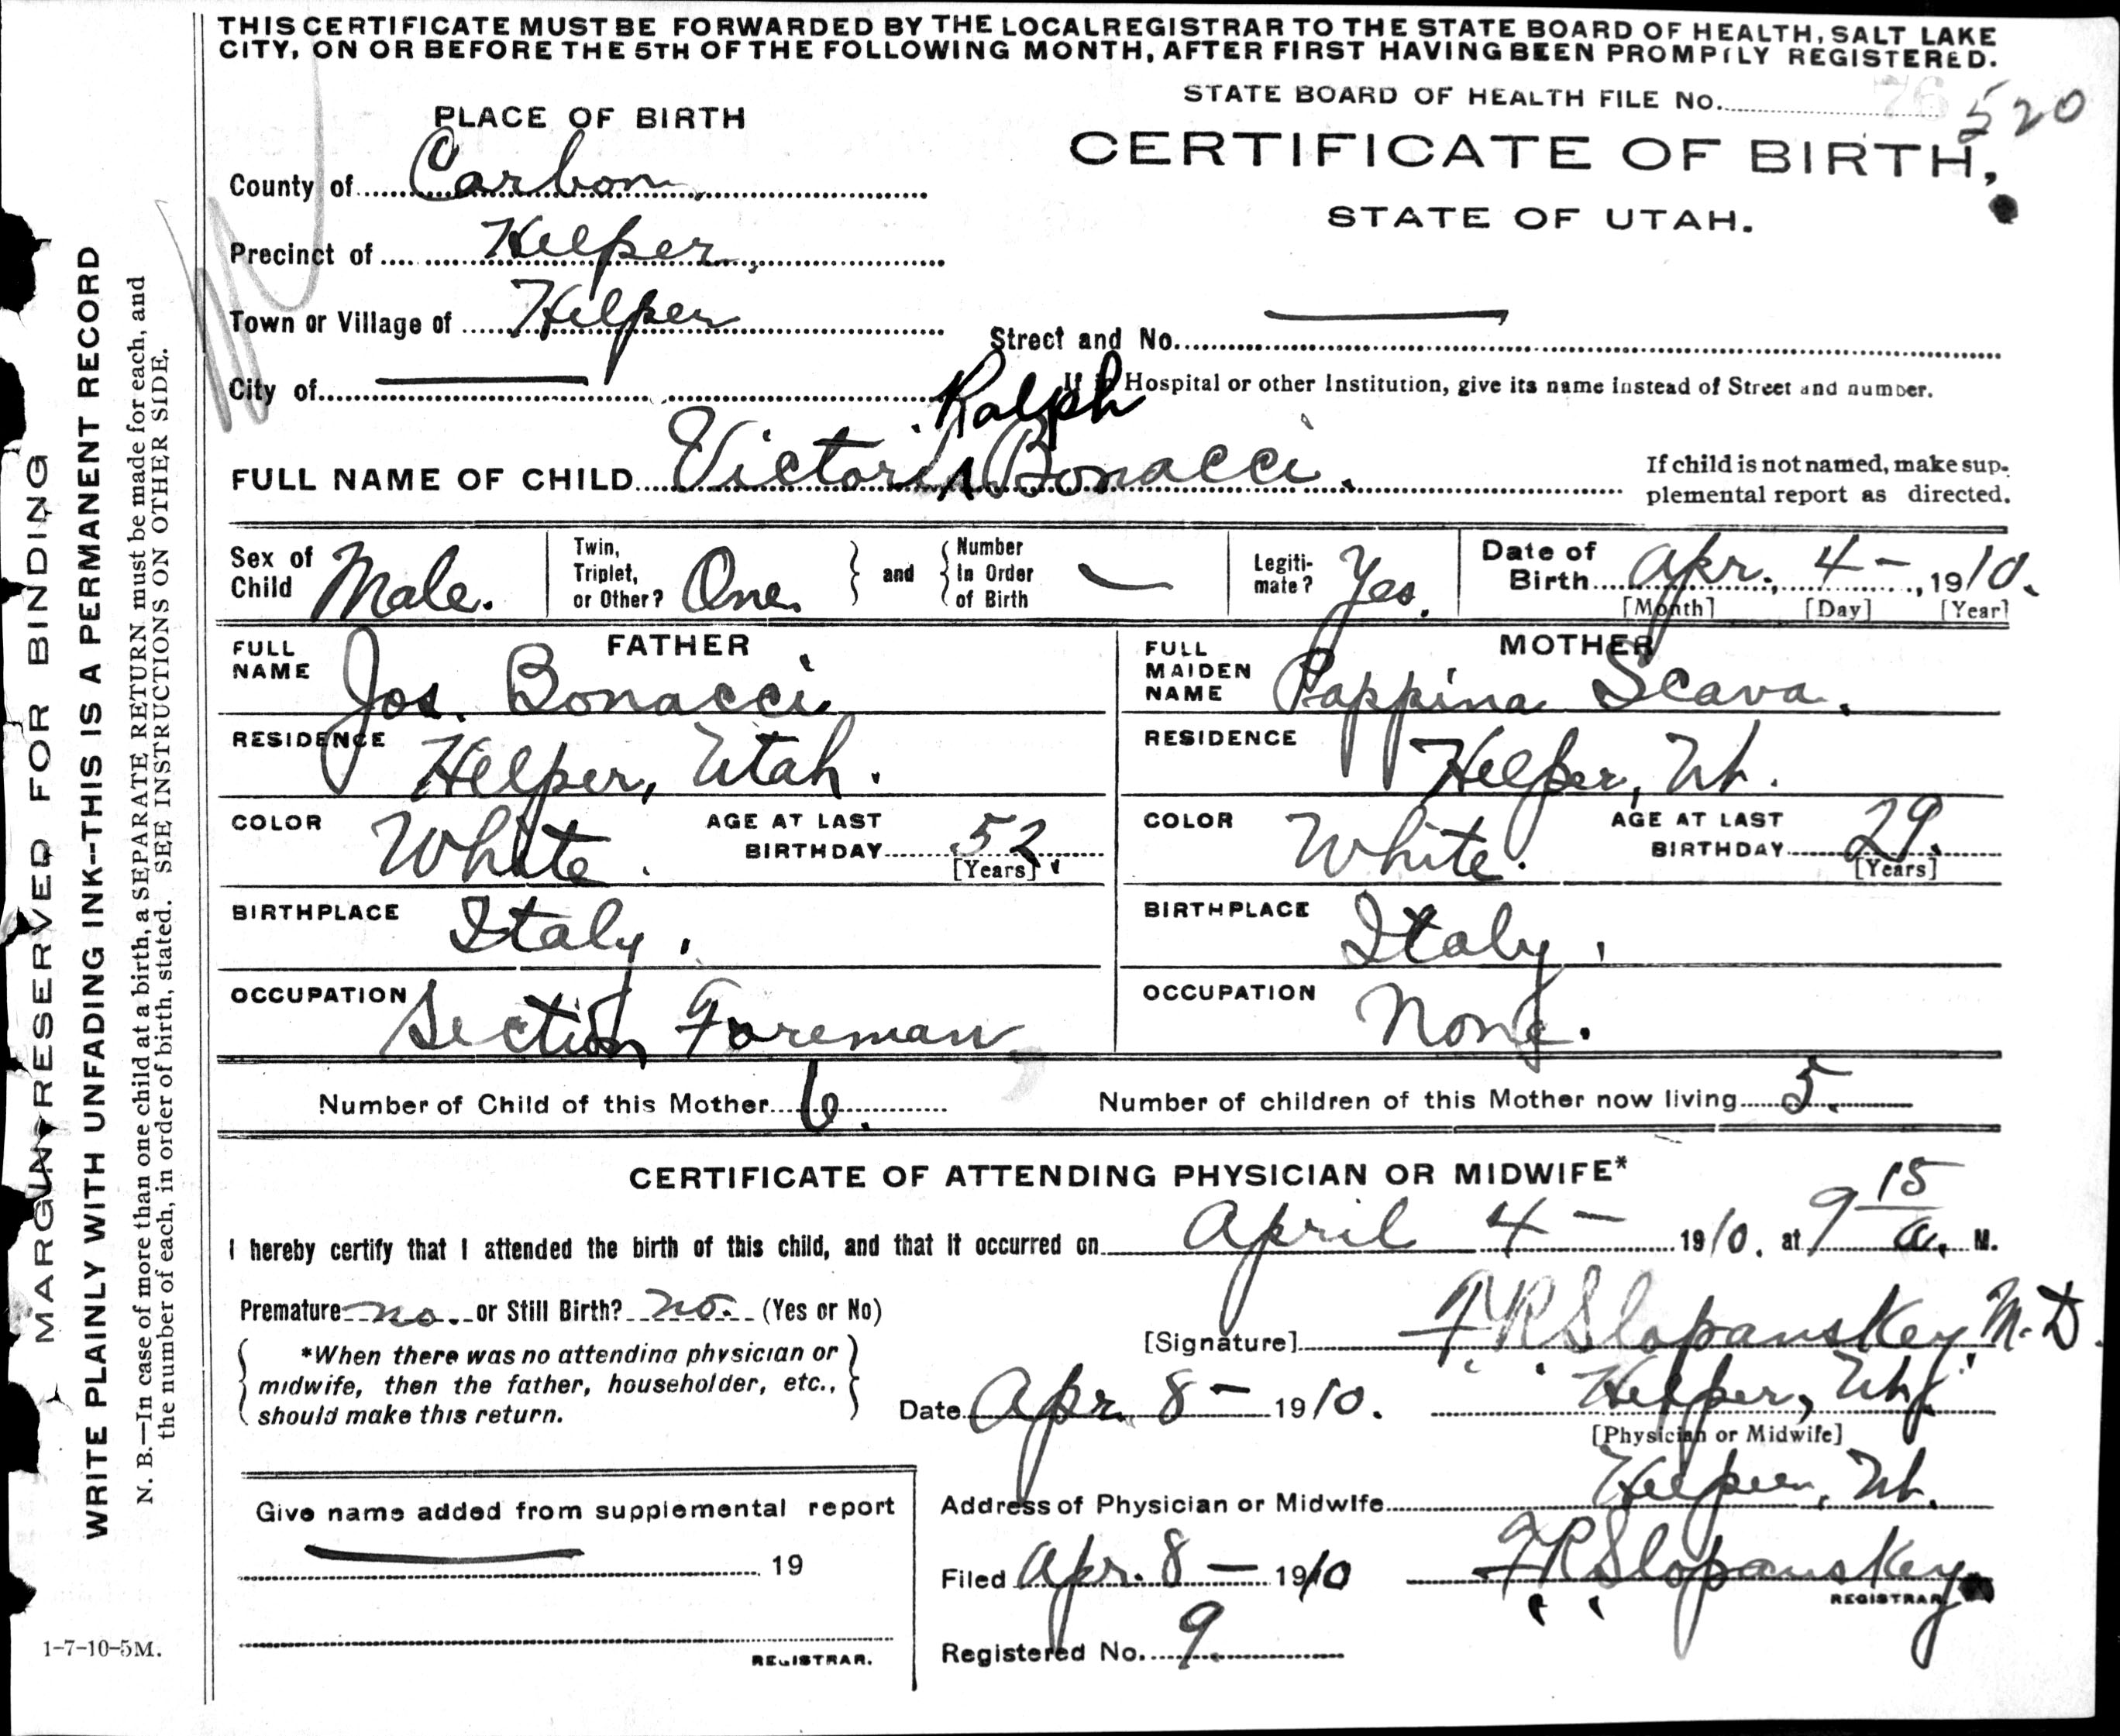 THIS CERTIFICATE MUST BE FORWARDED BY THE LOCAL REGISTRAR TO THE STATE BOARD OF HEALTH, SALT LAKE
CITY, ON OR BEFORE THE 5TH OF THE FOLLOWING MONTH, AFTER FIRST HAVING BEEN PROMPTLY REGISTERED.
STATE BOARD OF HEALTH FILE No. 76 520
PLACE OF BIRTH
CERTIFICATE OF BIRTH,
STATE OF UTAH.
County of Carbon,
Precinct of Helper,
Town or Village of Helper
Street and No. —
City of —
If in Hospital or other Institution, give its name instead of Street and number.
Ralph
FULL NAME OF CHILD Victor Bonacci.
If child is not named, make sup-
plemental report as directed.
Sex of Child Male.
Twin, Triplet, or Other? One. and Number In Order of Birth —
Legiti-mate? Yes.
Date of Birth Apr. 4 –, 1910.
[Month] [Day] [Year]
FATHER
FULL NAME Jos. Bonacci.
RESIDENCE Helper, Utah.
COLOR White. AGE AT LAST BIRTHDAY 52. [Years]
BIRTHPLACE Italy.
OCCUPATION Section Foreman
MOTHER
FULL MAIDEN NAME Pappina Scava.
RESIDENCE Helper, Ut.
COLOR White. AGE AT LAST BIRTHDAY 29. [Years]
BIRTHPLACE Italy.
OCCUPATION None.
Number of Child of this Mother 6. Number of children of this Mother now living 5.
CERTIFICATE OF ATTENDING PHYSICIAN OR MIDWIFE*
I hereby certify that I attended the birth of this child, and that it occurred on April 4 – 1910. at 9 15 a. M.
Premature no. or Still Birth? no. (Yes or No)
*When there was no attending physician or
midwife, then the father, householder, etc.,
should make this return.
[Signature] F. R. Slopanskey, M. D.
Date Apr. 8 – 1910. Helper, Ut.
[Physician or Midwife]
Address of Physician or Midwife Helper, Ut.
Filed Apr. 8 – 1910 F. R. Slopanskey.
REGISTRAR.
Registered No. 9.
Give name added from supplemental report
— 19
REGISTRAR.
1-7-10-5M.
MARGIN RESERVED FOR BINDING
WRITE PLAINLY WITH UNFADING INK--THIS IS A PERMANENT RECORD
N. B.—In case of more than one child at a birth, a SEPARATE RETURN must be made for each, and
the number of each, in order of birth, stated. SEE INSTRUCTIONS ON OTHER SIDE.